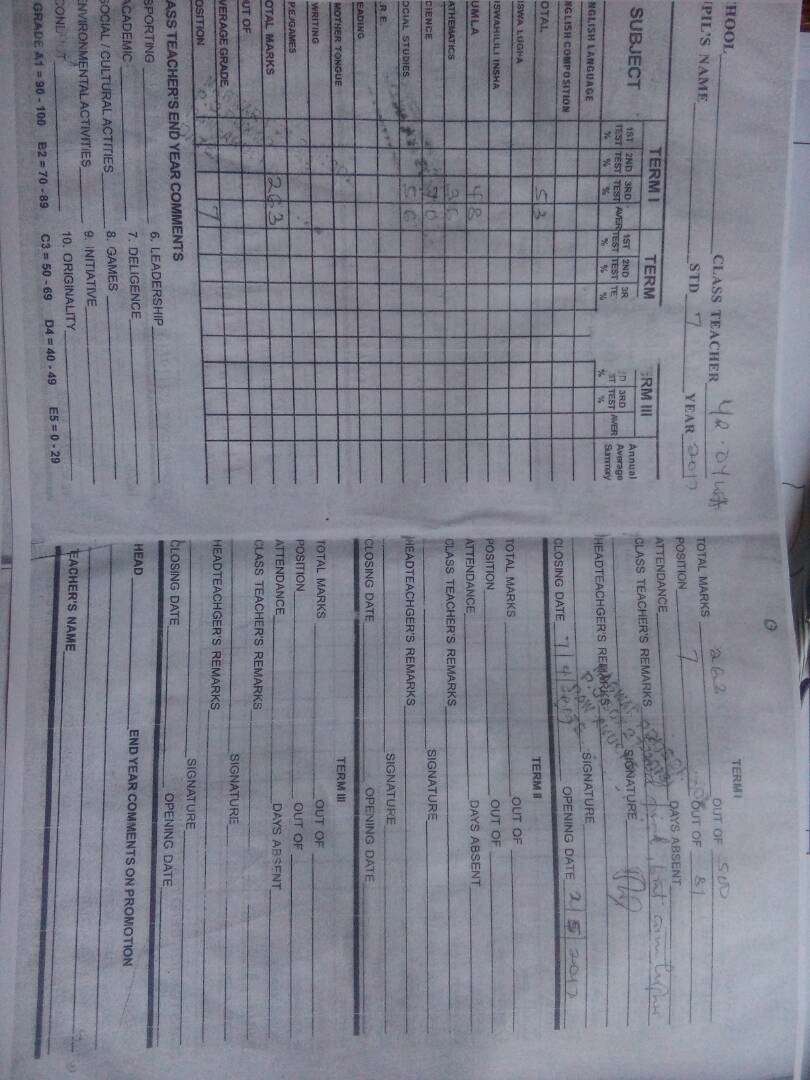 HOOL
CLASS TEACHER
PIL'S NAME
STD 7 YEAR 2017
SUBJECT
TERM I
TERM
RM III
1ST TEST %
2ND TEST %
3RD TEST %
AVER
1ST TEST %
2ND TEST %
3R TE %
3RD TEST %
AVER
Annual Average Summay
NGLISH LANGUAGE
NGLISH COMPOSITION
OTAL 53
ISWA LUGHA
ISWAHULILI INSHA
UMLA 48
ATHEMATICS 36
CIENCE 70
OCIAL STUDIES 56
.R.E.
EADING
MOTHER TONGUE
WRITING
PE/GAMES
OTAL MARKS 263
UT OF
VERAGE GRADE
OSITION 7
ASS TEACHER'S END YEAR COMMENTS
SPORTING 6. LEADERSHIP
ACADEMIC 7. DELIGENCE
SOCIAL / CULTURAL ACTITIES 8. GAMES
ENVIRONMENTAL ACTIVITIES 9. INITIATIVE
10. ORIGINALITY
GRADE A1 = 90 - 100 B2 = 70 - 89 C3 = 50 - 69 D4 = 40 - 49 E5 = 0 - 29
TERM I
TOTAL MARKS 263 OUT OF 500
POSITION 7 OUT OF 81
ATTENDANCE DAYS ABSENT
CLASS TEACHER'S REMARKS
SIGNATURE
HEADTEACHGER'S REMARKS
SIGNATURE
CLOSING DATE 7/4/2017 OPENING DATE 2/5/2017
TERM II
TOTAL MARKS OUT OF
POSITION OUT OF
ATTENDANCE DAYS ABSENT
CLASS TEACHER'S REMARKS
SIGNATURE
HEADTEACHGER'S REMARKS
SIGNATURE
CLOSING DATE OPENING DATE
TERM III
TOTAL MARKS OUT OF
POSITION OUT OF
ATTENDANCE DAYS ABSENT
CLASS TEACHER'S REMARKS
SIGNATURE
HEADTEACHGER'S REMARKS
SIGNATURE
CLOSING DATE OPENING DATE
HEAD END YEAR COMMENTS ON PROMOTION
EACHER'S NAME